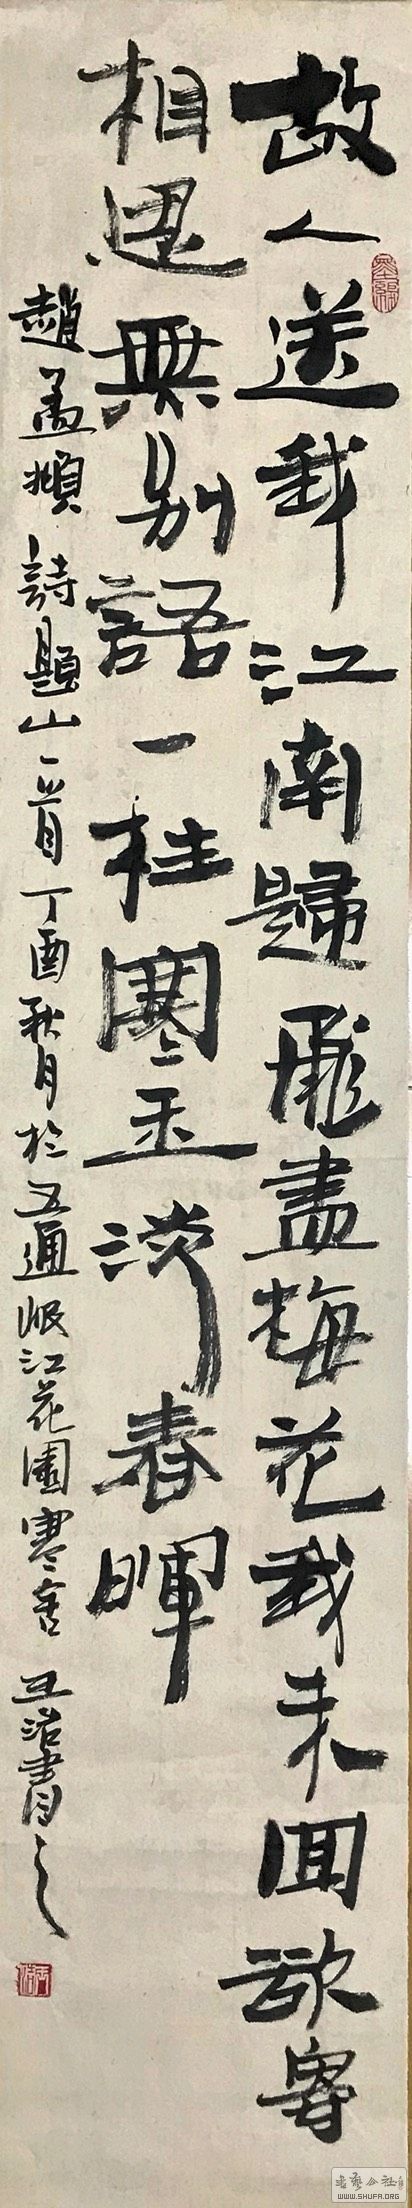 故人送我江南歸飛盡梅花我未囬欲寄
相思無別語一枝寒玉淡春暉
趙孟頫詩題山一首丁酉秋月於五通岷江花園寒舍 王治書之
書藝公社
WWW.SHUFA.ORG